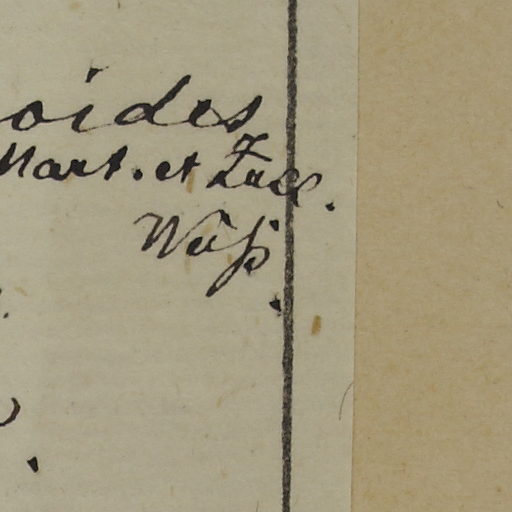 oides
Mart. et Zucc.